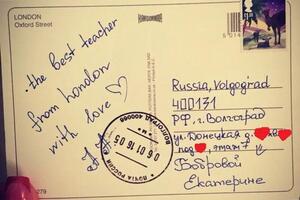 LONDON
Oxford Street
· the best teacher
from London
with love ♡
Russia, Volgograd
400131
РФ. г. Волгоград
ул. Донецкая д.
под , этаж 7
Бобровой
Екатерине
ВОЛГОГРАД 400066
06 01 16 05
ПОЧТА РОССИИ
279